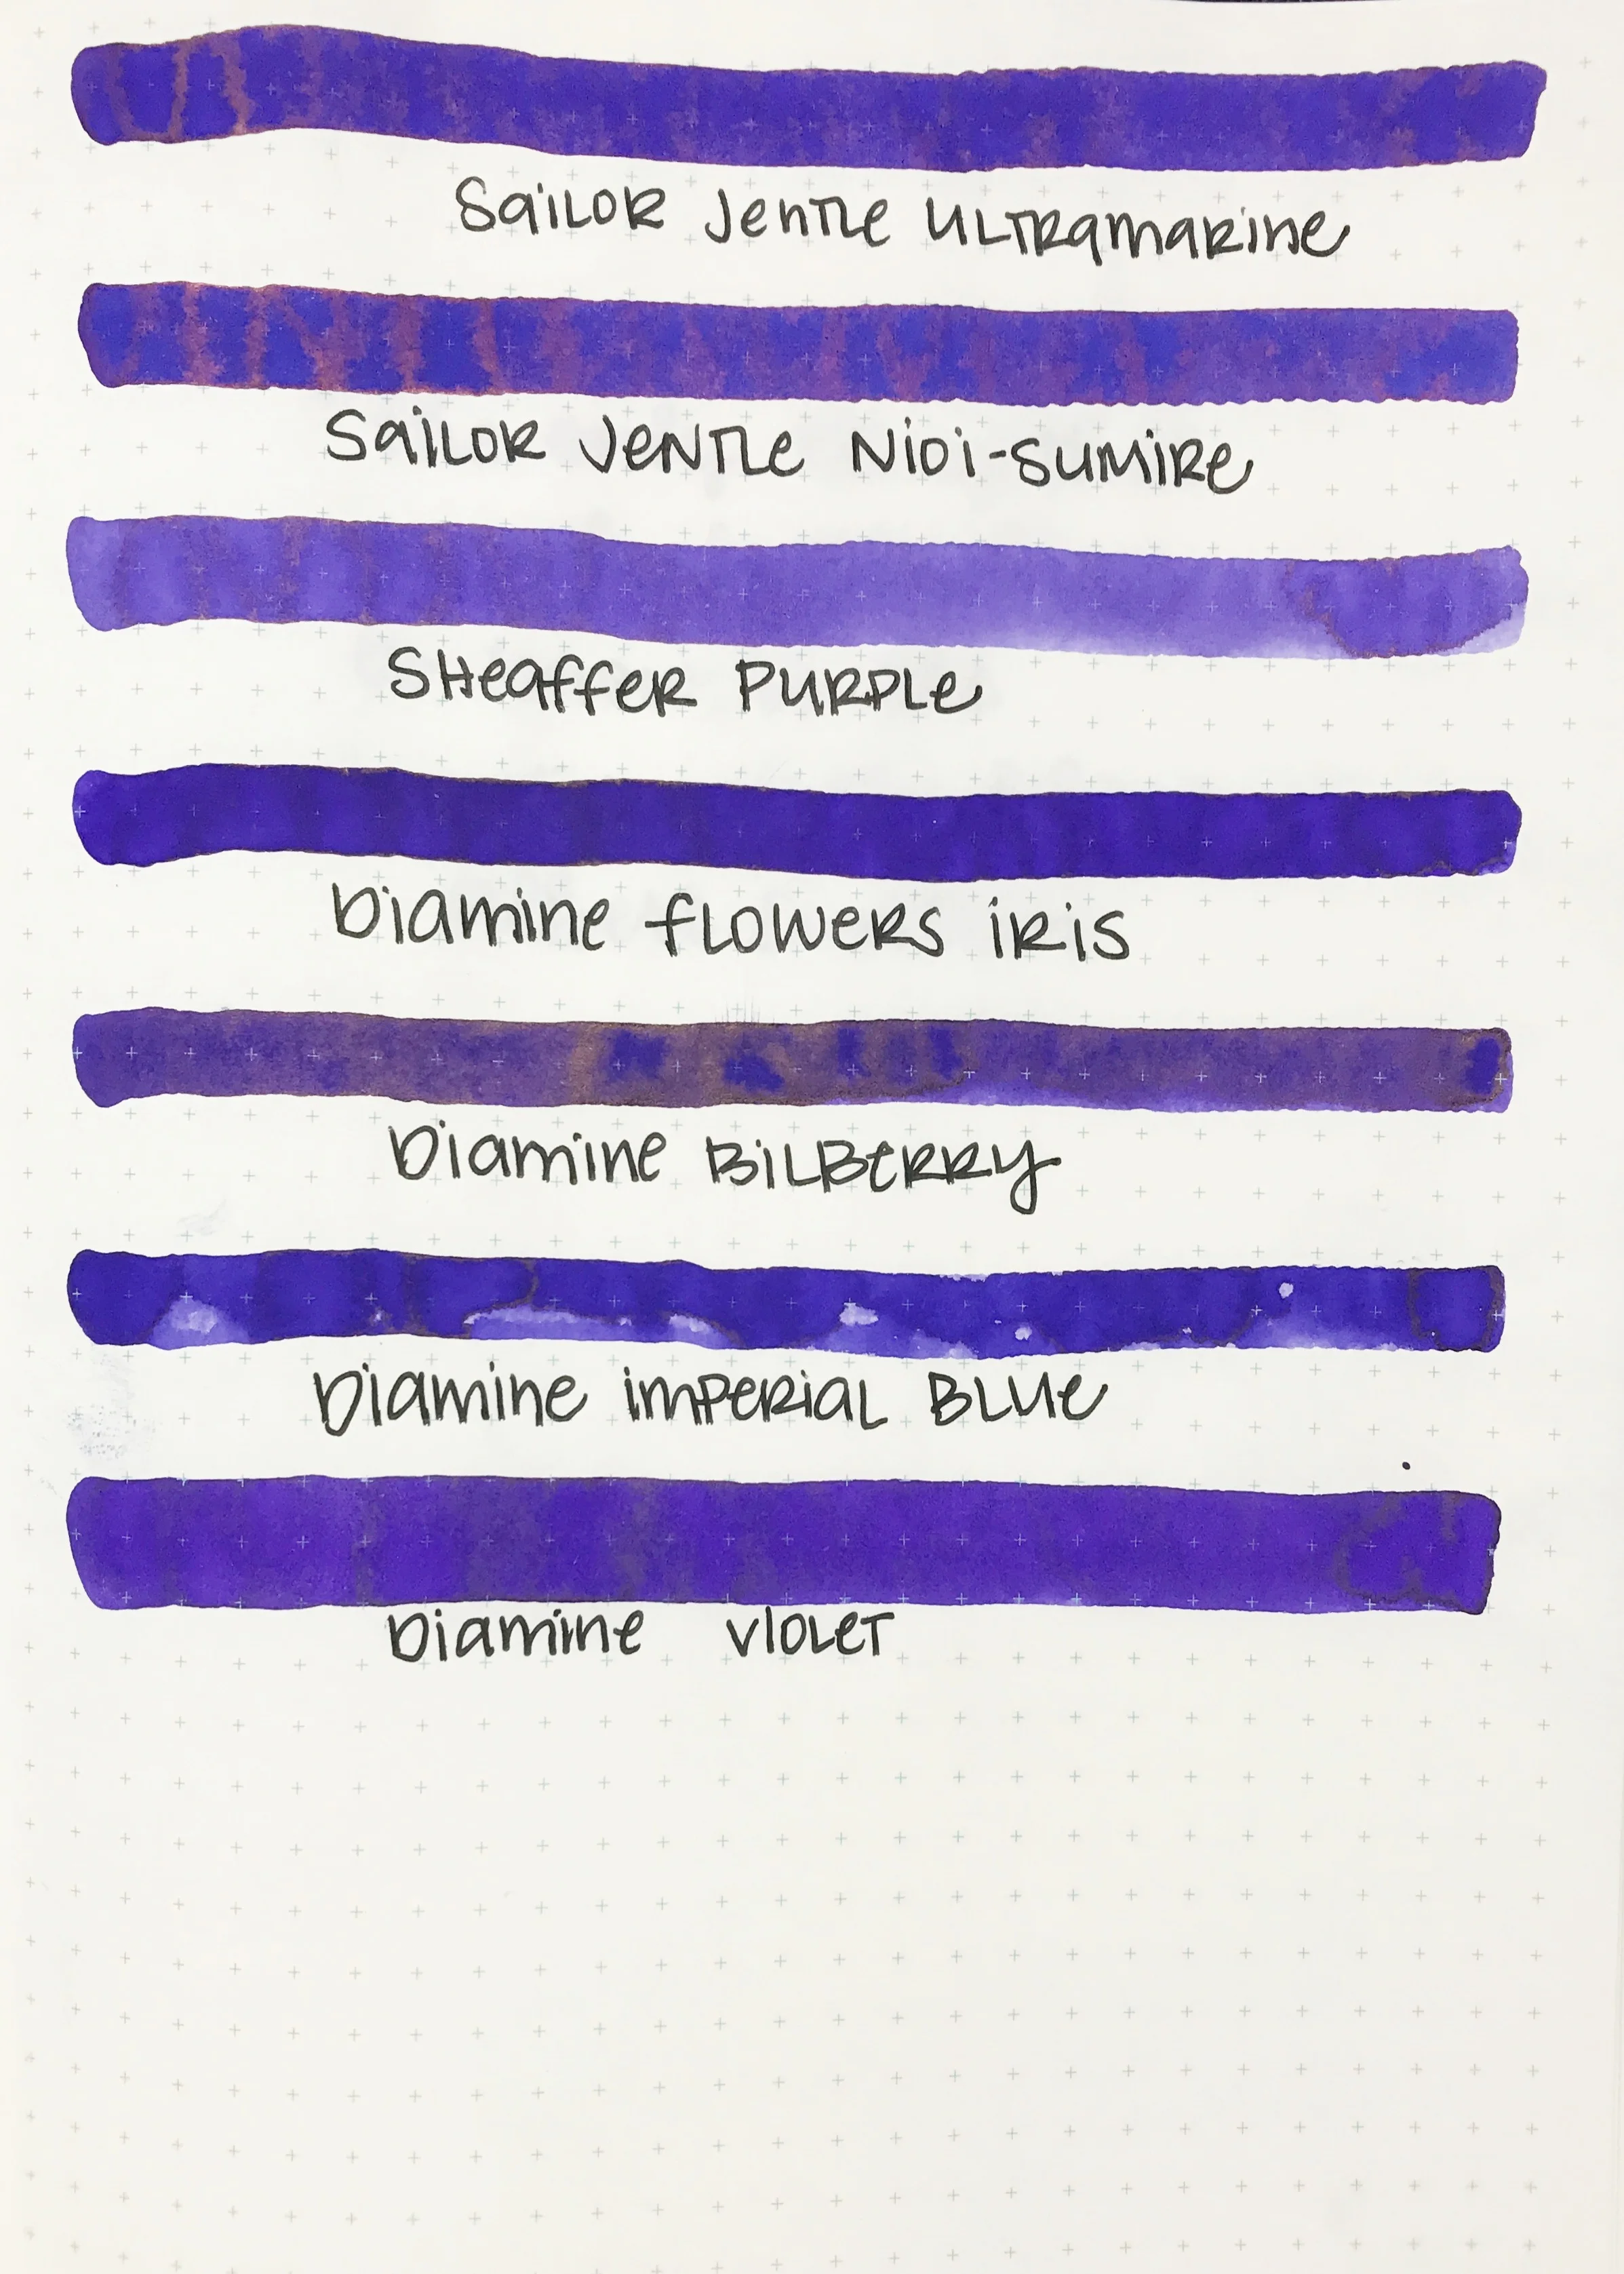 Sailor Jentle Ultramarine
Sailor Jentle Nioi-Sumire
Sheaffer Purple
Diamine Flowers Iris
Diamine Bilberry
Diamine Imperial Blue
Diamine Violet